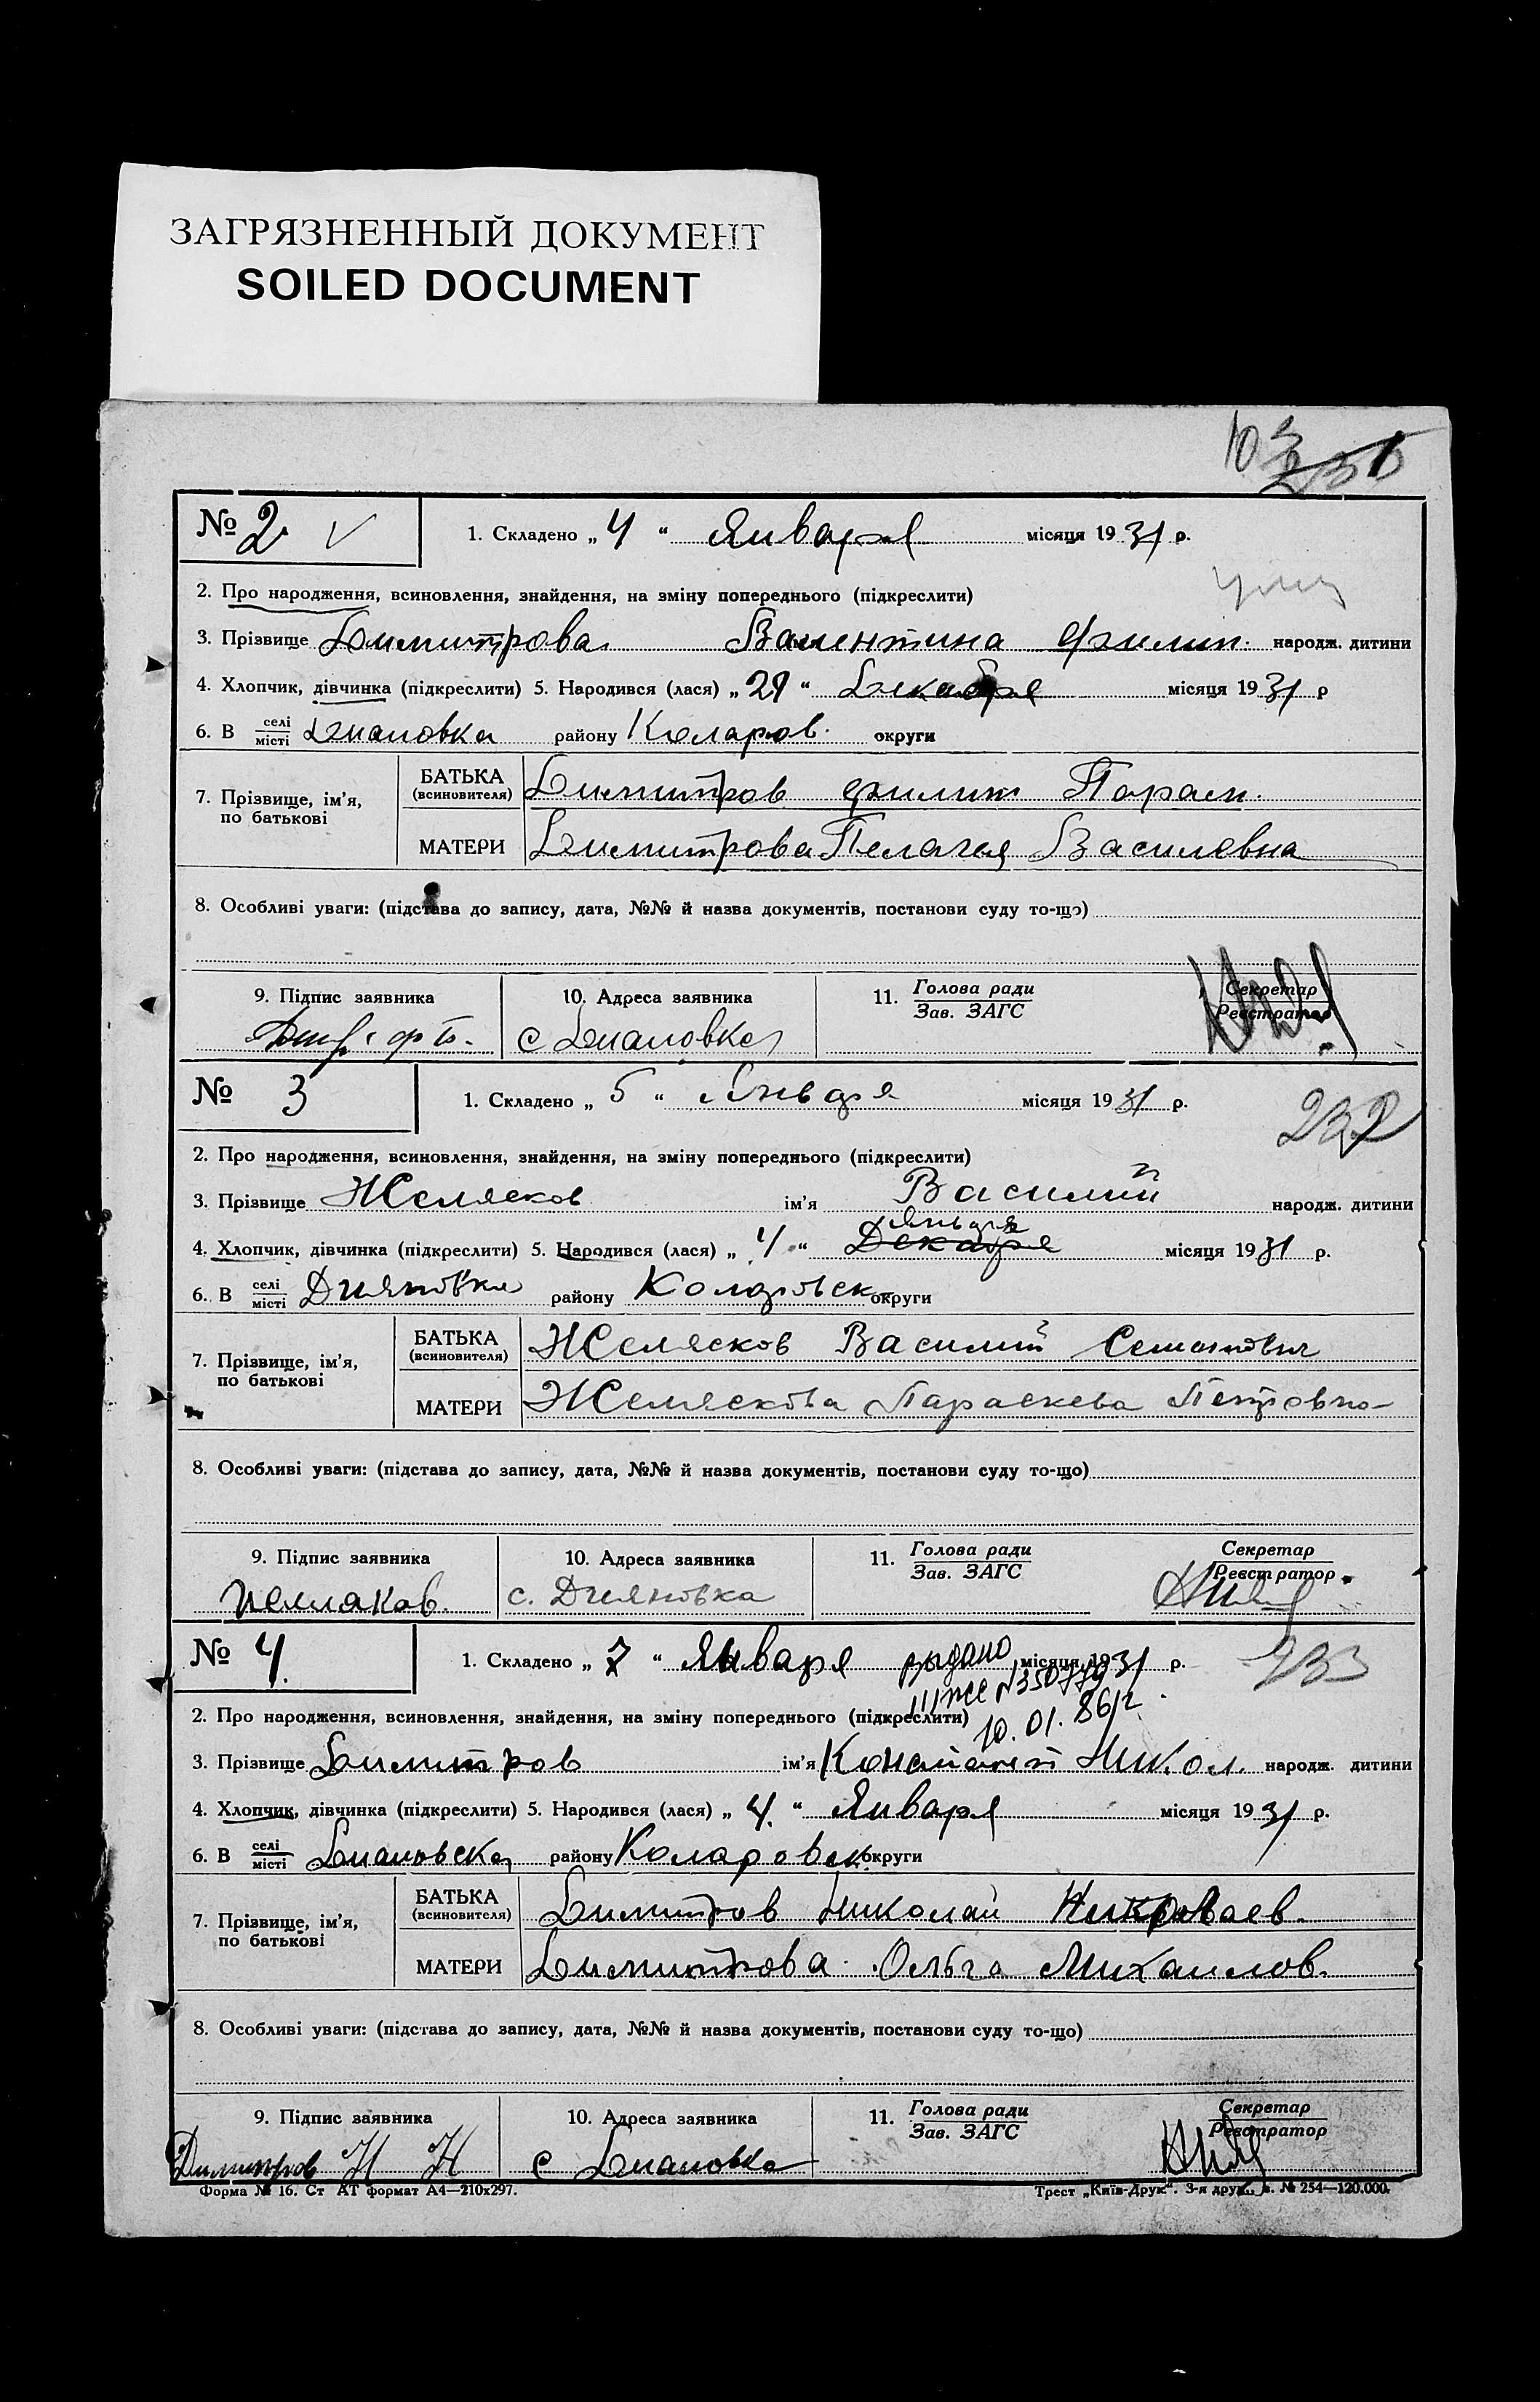 ЗАГРЯЗНЕННЫЙ ДОКУМЕНТ
SOILED DOCUMENT
103
231
№ 2 v
1. Складено „ 4 “ Января місяця 1931 р.
2. Про народження, всиновлення, знайдення, на зміну попереднього (підкреслити)
3. Прізвище Димитрова Валентина Филип. народж. дитини
4. Хлопчик, дівчинка (підкреслити) 5. Народився (лася) „ 29 “ Декабря місяця 1931 р
6. В селі/місті Диановка району Коларов. округи
7. Прізвище, ім’я, по батькові
БАТЬКА (всиновителя) Димитров Филип Параск.
МАТЕРИ Димитрова Пелагея Василевна
8. Особливі уваги: (підстава до запису, дата, №№ й назва документів, постанови суду то-що)
9. Підпис заявника
10. Адреса заявника с Диановка
11. Голова ради / Зав. ЗАГС
Секретар / Реєстратор
№ 3
1. Складено „ 5 “ Января місяця 1931 р.
232
2. Про народження, всиновлення, знайдення, на зміну попереднього (підкреслити)
3. Прізвище Желясков ім’я Василий народж. дитини
Января
4. Хлопчик, дівчинка (підкреслити) 5. Народився (лася) „ 4 “ Декабря місяця 1931 р.
6. В селі/місті Дияновка району Коларовск. округи
7. Прізвище, ім’я, по батькові
БАТЬКА (всиновителя) Желясков Василий Семенович
МАТЕРИ Желяскова Параскева Петровна
8. Особливі уваги: (підстава до запису, дата, №№ й назва документів, постанови суду то-що)
9. Підпис заявника Желяков.
10. Адреса заявника с. Дияновка
11. Голова ради / Зав. ЗАГС
Секретар / Реєстратор
№ 4.
1. Складено „ 7 “ Января місяця 1931 р.
233
выдано
III ЖС №350779
10.01.86 г.
2. Про народження, всиновлення, знайдення, на зміну попереднього (підкреслити)
3. Прізвище Димитров ім’я Никол. народж. дитини
4. Хлопчик, дівчинка (підкреслити) 5. Народився (лася) „ 4. “ Января місяця 1931 р.
6. В селі/місті Диановска району Коларовск. округи
7. Прізвище, ім’я, по батькові
БАТЬКА (всиновителя) Димитров Николай Николаев.
МАТЕРИ Димитрова Ольга Михаилов.
8. Особливі уваги: (підстава до запису, дата, №№ й назва документів, постанови суду то-що)
9. Підпис заявника Димитров Н Н
10. Адреса заявника с Диановка
11. Голова ради / Зав. ЗАГС
Секретар / Реєстратор
Форма № 16. Ст АТ формат А4—210х297.
Трест „Київ-Друк“. 3-я друк., з. № 254—120.000.